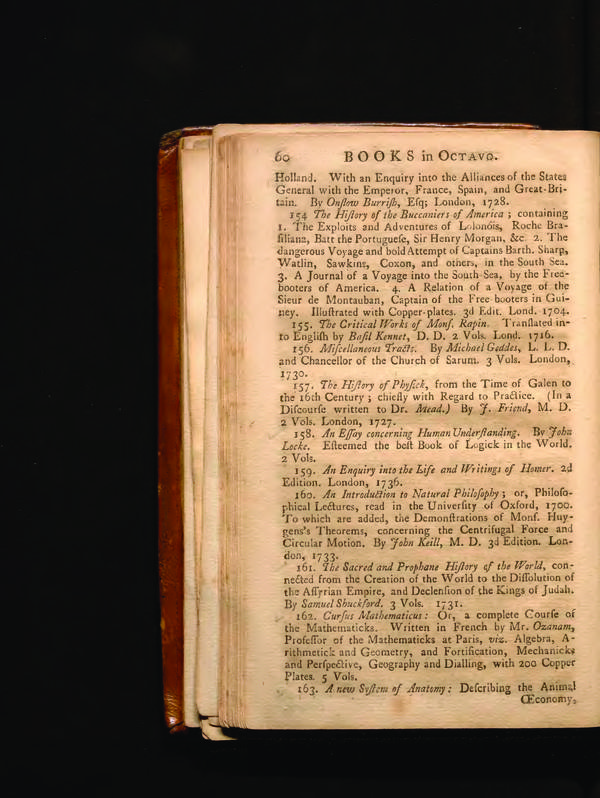 60 BOOKS in OCTAVO.
Holland. With an Enquiry into the Alliances of the States
General with the Emperor, France, Spain, and Great-Bri-
tain. By Onſlow Burriſh, Eſq; London, 1728.
154 The Hiſtory of the Buccaniers of America ; containing
1. The Exploits and Adventures of Lolonois, Roche Bra-
ſiliano, Batt the Portugueſe, Sir Henry Morgan, &c 2. The
dangerous Voyage and bold Attempt of Captains Barth. Sharp,
Watlin, Sawkins, Coxon, and others, in the South Sea.
3. A Journal of a Voyage into the South-Sea, by the Free-
booters of America. 4. A Relation of a Voyage of the
Sieur de Montauban, Captain of the Free-booters in Gui-
ney. Illuſtrated with Copper-plates. 3d Edit. Lond. 1704.
155. The Critical Works of Monſ. Rapin. Tranſlated in-
to Engliſh by Baſil Kennet, D. D. 2 Vols. Lond. 1716.
156. Miſcellaneous Tracts. By Michael Geddes, L. L. D.
and Chancellor of the Church of Sarum. 3 Vols. London,
1730.
157. The Hiſtory of Phyſick, from the Time of Galen to
the 16th Century ; chiefly with Regard to Practice. (In a
Diſcourſe written to Dr. Mead.) By J. Friend, M. D.
2 Vols. London, 1727.
158. An Eſſay concerning Human Underſtanding. By John
Locke. Eſteemed the beſt Book of Logick in the World.
2 Vols.
159. An Enquiry into the Life and Writings of Homer. 2d
Edition. London, 1736.
160. An Introduction to Natural Philoſophy ; or, Philoſo-
phical Lectures, read in the Univerſity of Oxford, 1700.
To which are added, the Demonſtrations of Monſ. Huy-
gens's Theorems, concerning the Centrifugal Force and
Circular Motion. By John Keill, M. D. 3d Edition. Lon-
don, 1733.
161. The Sacred and Prophane Hiſtory of the World, con-
nected from the Creation of the World to the Diſſolution of
the Aſſyrian Empire, and Declenſion of the Kings of Judah.
By Samuel Shuckford. 3 Vols. 1731.
162. Curſus Mathematicus: Or, a complete Courſe of
the Mathematicks. Written in French by Mr. Ozanam,
Profeſſor of the Mathematicks at Paris, viz. Algebra, A-
rithmetick and Geometry, and Fortification, Mechanicks
and Perſpective, Geography and Dialling, with 200 Copper
Plates. 5 Vols.
163. A new Syſtem of Anatomy: Deſcribing the Animal
Œconomy,